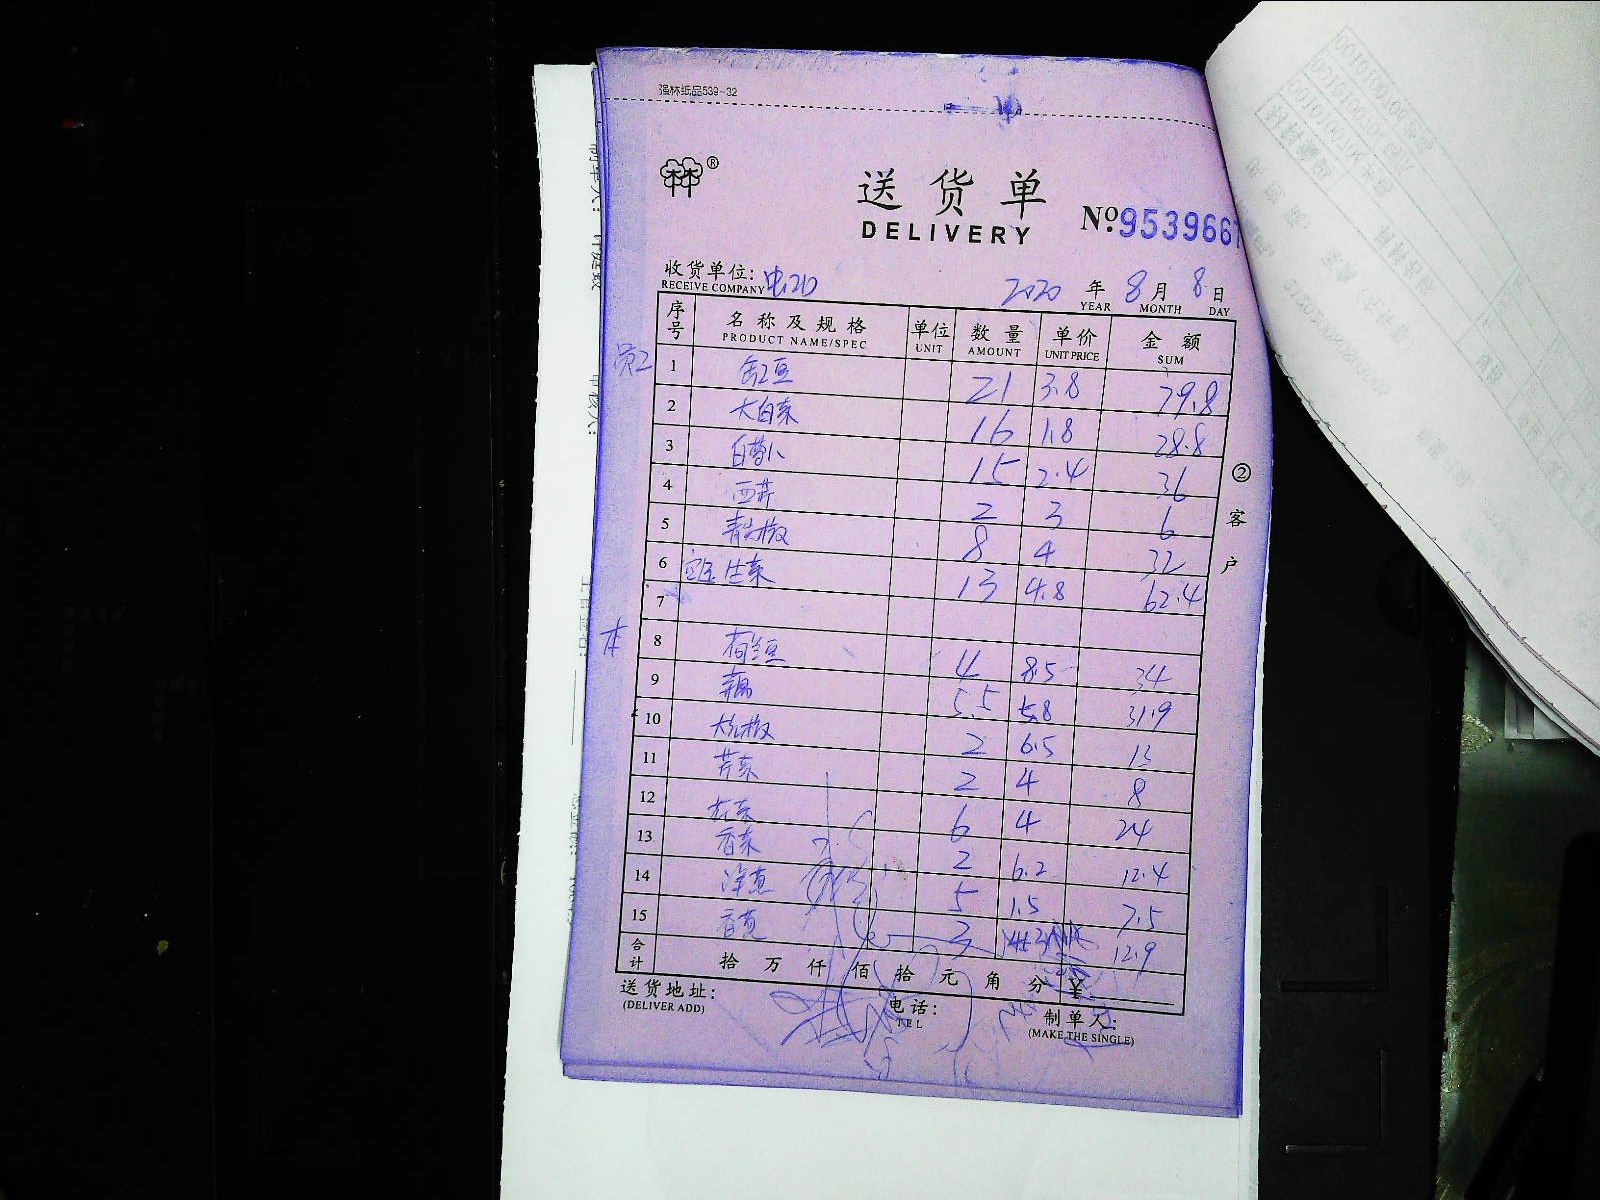 强林纸品539-32
送货单
DELIVERY
№:9539667
收货单位:
RECEIVE COMPANY
2020 年 8 月 8 日
YEAR MONTH DAY
序号 名称及规格 单位 数量 单价 金额
PRODUCT NAME/SPEC UNIT AMOUNT UNIT PRICE SUM
员工
1 豇豆 21 3.8 79.8
2 大白菜 16 1.8 28.8
3 白萝卜 15 2.4 36
4 西芹 2 3 6
5 青尖椒 8 4 32
6 生菜 13 4.8 62.4
7
本
8 荷兰豆 4 8.5 34
9 藕 5.5 5.8 31.9
10 2 6.5 13
11 芹菜 2 4 8
12 6 4 24
13 香菜 2 6.2 12.4
14 洋葱 5 1.5 7.5
15 香葱 12.9
合计 拾 万 仟 佰 拾 元 角 分 ¥
送货地址:
(DELIVER ADD)
电话:
TEL
制单人:
(MAKE THE SINGLE)
②客户